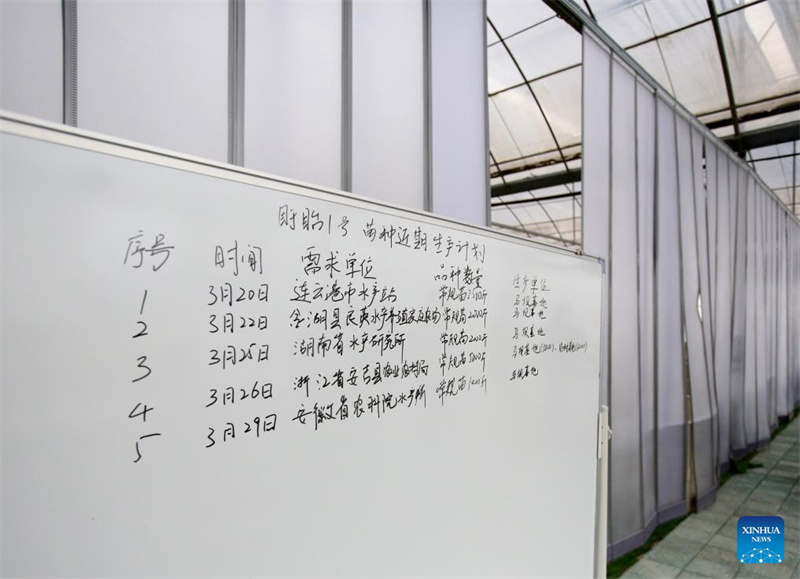 盱眙1号 苗种近期生产计划
序号 时间 需求单位 品种数量 生产单位
1 3月20日 连云港市水产站 常规苗 马坝基地
2 3月22日 金湖县良夷水产养殖家庭农场 常规苗2000斤 马坝基地
3 3月25日 湖南省水产研究所 常规苗2000斤 马坝基地
4 3月26日 浙江省安吉县农业农村局 常规苗5000斤 马坝基地
5 3月29日 安徽省农科院水产所 常规苗 马坝基地
XINHUA
NEWS